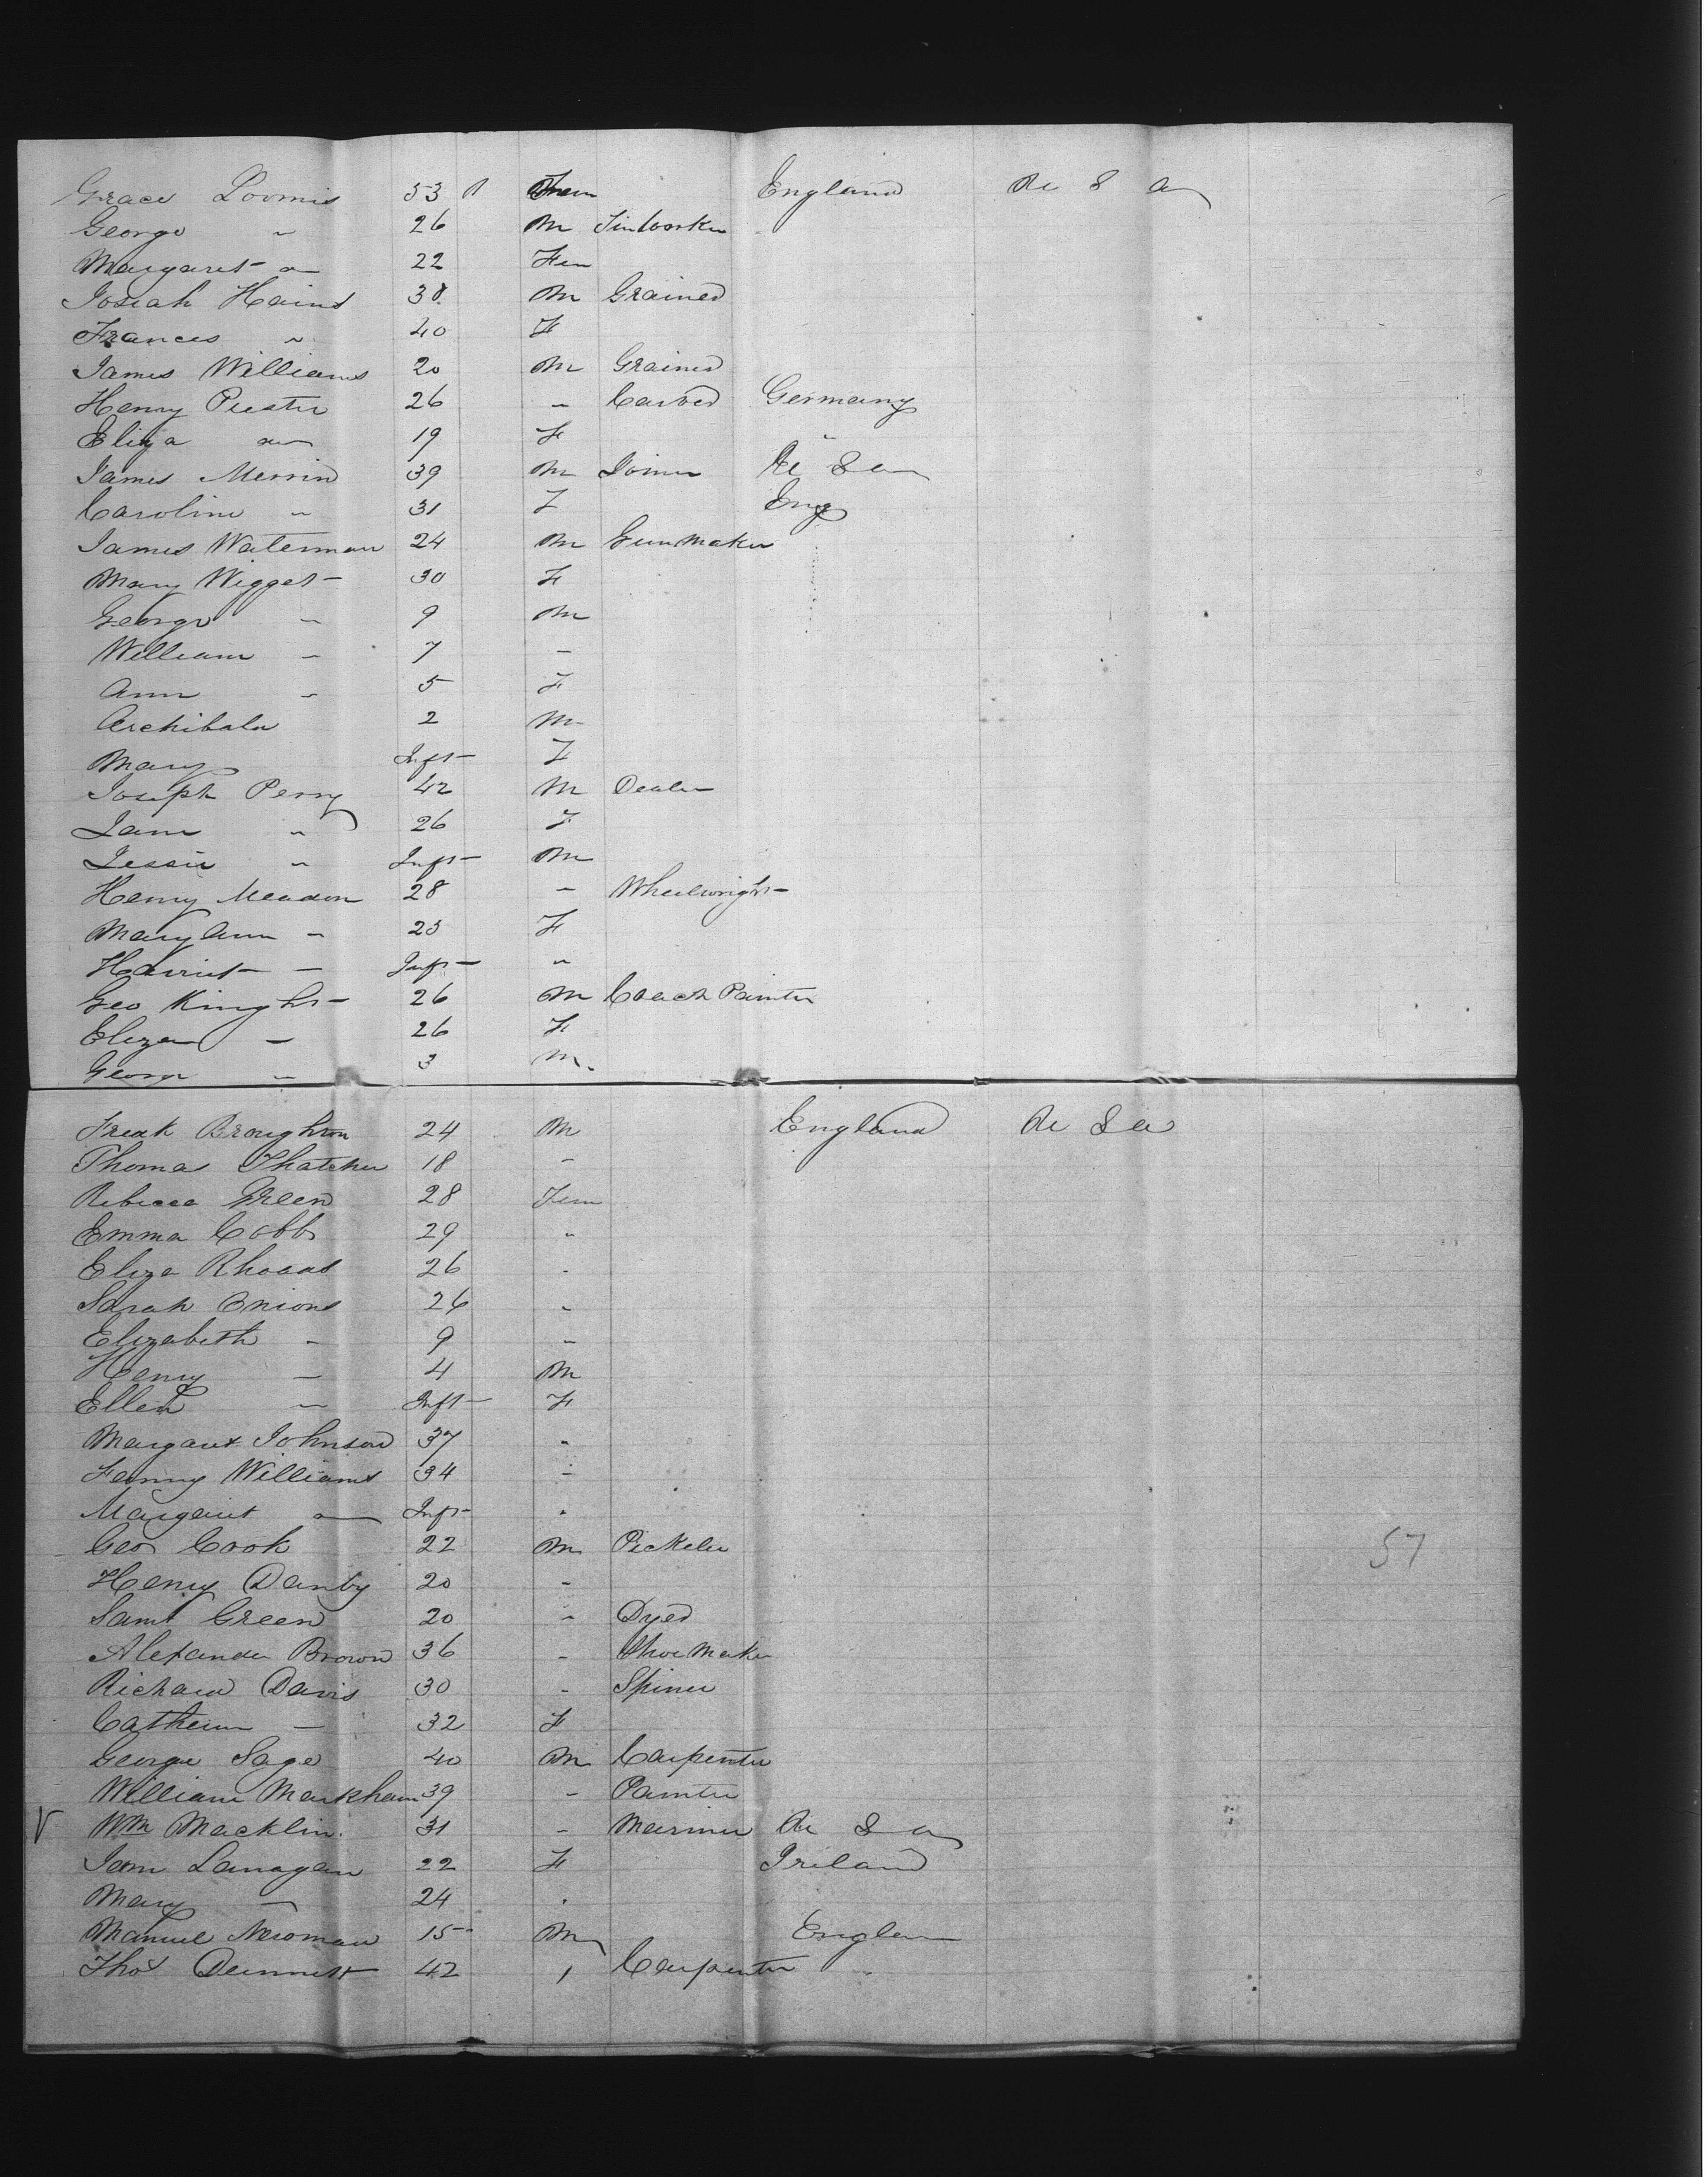 Grace Loomis 53 Fem England U S A
George " 26 M Tin Worker
Margaret " 22 Fem
Josiah Hains 38 M Grainer
Frances " 40 F
James Williams 20 M Grainer
Henry 26 " Carver Germany
Eliza " 19 F "
James Merrin 39 M Joiner U S A
Caroline " 31 F Eng
James Waterman 24 M Gun Maker
Mary Wigget 30 F
George " 9 M
William " 7 "
Ann " 5 F
Archibald 2 M
Mary Inft F
Joseph Perry 42 M Dealer
Jane " 26 F
Jessie " Inft M
Henry Meadon 28 " Wheelwright
Mary Ann " 23 F
Harriet " Inft "
Geo Kinght 26 M Coach Painter
Eliza " 26 F
George " 3 M
Broughton 24 M England U S A
Thomas Thatcher 18 "
Rebecca Green 28 Fem
Emma Cobb 29 "
Eliza Rhoads 26 "
Sarah Onions 26 "
Elizabeth " 9 "
Henry " 4 M
Ellen " Inft F
Margaret Johnson 37 "
Fanny Williams 34 "
Margaret " Inft "
Geo Cook 22 M
Henry Danby 20 "
Saml Green 20 " Dyer
Alexander Brown 36 " Shoe Maker
Richard Davis 30 " Spiner
Cathern " 32 F
George Sage 40 M Carpenter
William Markham 39 " Painter
V Wm Macklin 31 " Mariner U S A
Jane Lanagan 22 F Ireland
Mary " 24 "
Newman 15 M England
Thos 42 " Carpenter "
57